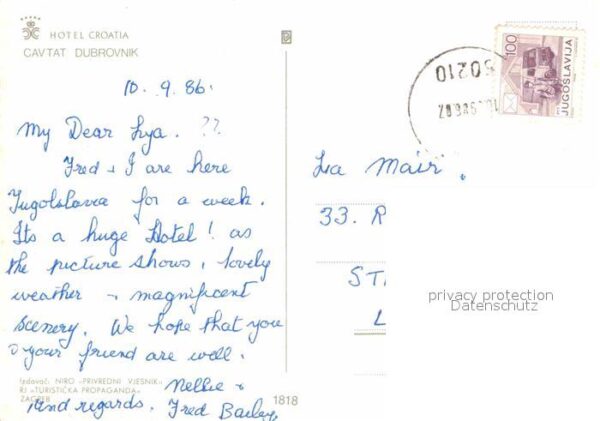 HOTEL CROATIA
CAVTAT DUBROVNIK
10.9.86.
My Dear Lya. ??
Fred & I are here
Jugolslavia for a week.
Its a huge Hotel! as
the picture shows, lovely
weather & magnificent
scenery. We hope that you
& your friend are well.
Nellie &
Kind regards. Fred Bailey
Izdavač: NIRO »PRIVREDNI VJESNIK«
RJ »TURISTIČKA PROPAGANDA«
ZAGREB
1818
100
JUGOSLAVIJA
50210
La Mair.
33. R
ST
L
privacy protection
Datenschutz